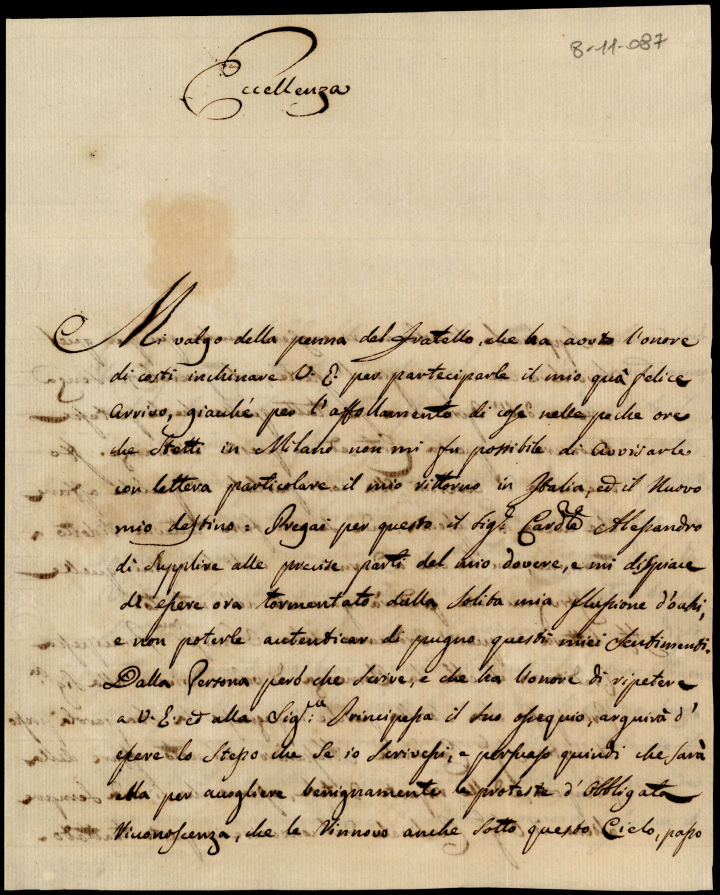 8-11-087
Eccellenza
Mi valgo della penna del Fratello, che ha avuto l'onore
di costi inchinare V. E. per parteciparle il mio quà felice
arrivo, giacché per l'affollamento di cose nelle poche ore
che stetti in Milano non mi fu possibile di avvisarle
con lettera particolare il mio ritorno in Italia, ed il Nuovo
mio destino: Pregai per questo il Sigr. Alessandro
di supplire alle precise parti del mio dovere, e mi dispiace
di essere ora tormentato dalla solita mia flussione d'occhi,
e non poterle autenticar di pugno questi miei Sentimenti.
Dalla Persona peró che scrive, e che ha l'onore di ripetere
a V. E. ed alla Sigra. Principessa il suo ossequio, arguirà d'
essere lo stesso che se io scrivessi, e persuaso quindi che sarà
ella per accogliere benignamente le proteste d'obbligata
Riconoscenza, che le rinnovo anche sotto questo Cielo, passo